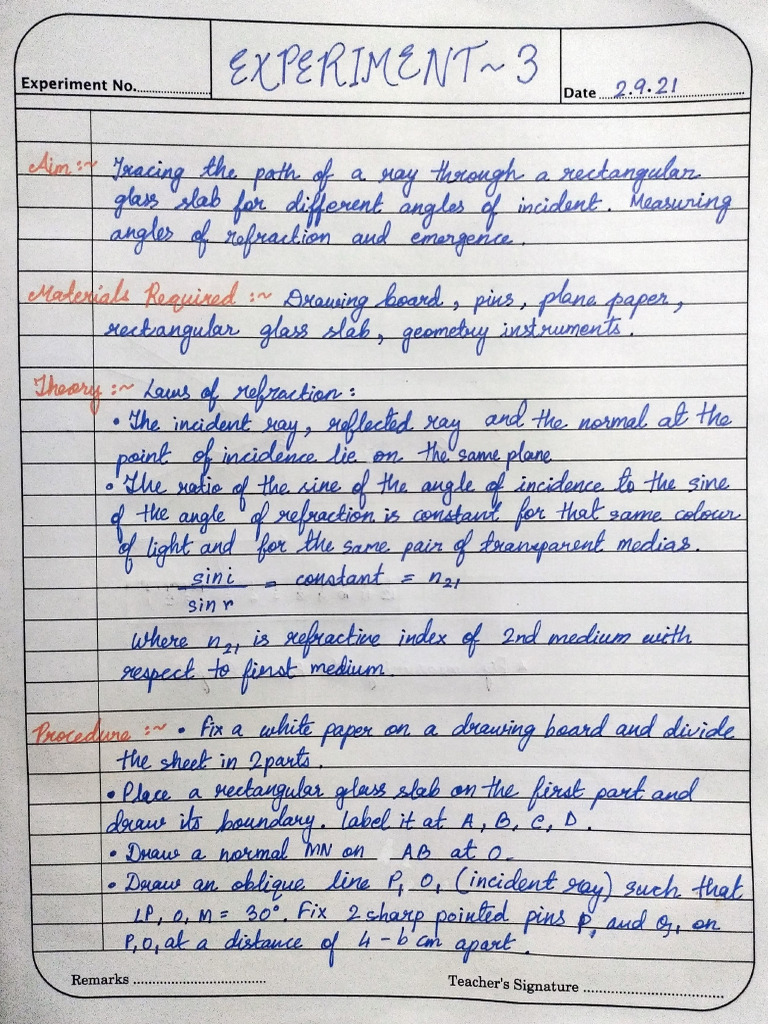 EXPERIMENT ~ 3
Experiment No.
Date 2.9.21
Aim :~ Tracing the path of a ray through a rectangular
glass slab for different angles of incident. Measuring
angles of refraction and emergence.
Materials Required :~ Drawing board, pins, plane paper,
rectangular glass slab, geometry instruments.
Theory :~ Laws of refraction :
• The incident ray, reflected ray and the normal at the
point of incidence lie on the same plane
• The ratio of the sine of the angle of incidence to the sine
of the angle of refraction is constant for that same colour
of light and for the same pair of transparent medias.
sin i / sin r = constant = n₂₁
where n₂₁ is refractive index of 2nd medium with
respect to first medium.
Procedure :~ • Fix a white paper on a drawing board and divide
the sheet in 2 parts.
• Place a rectangular glass slab on the first part and
draw its boundary. Label it at A, B, C, D.
• Draw a normal MN on AB at O.
• Draw an oblique line P₁ O₁ (incident ray) such that
∠P₁O₁M = 30°. Fix 2 sharp pointed pins P₁ and Q₁ on
P₁O₁ at a distance of 4 - 6 cm apart.
Remarks
Teacher's Signature